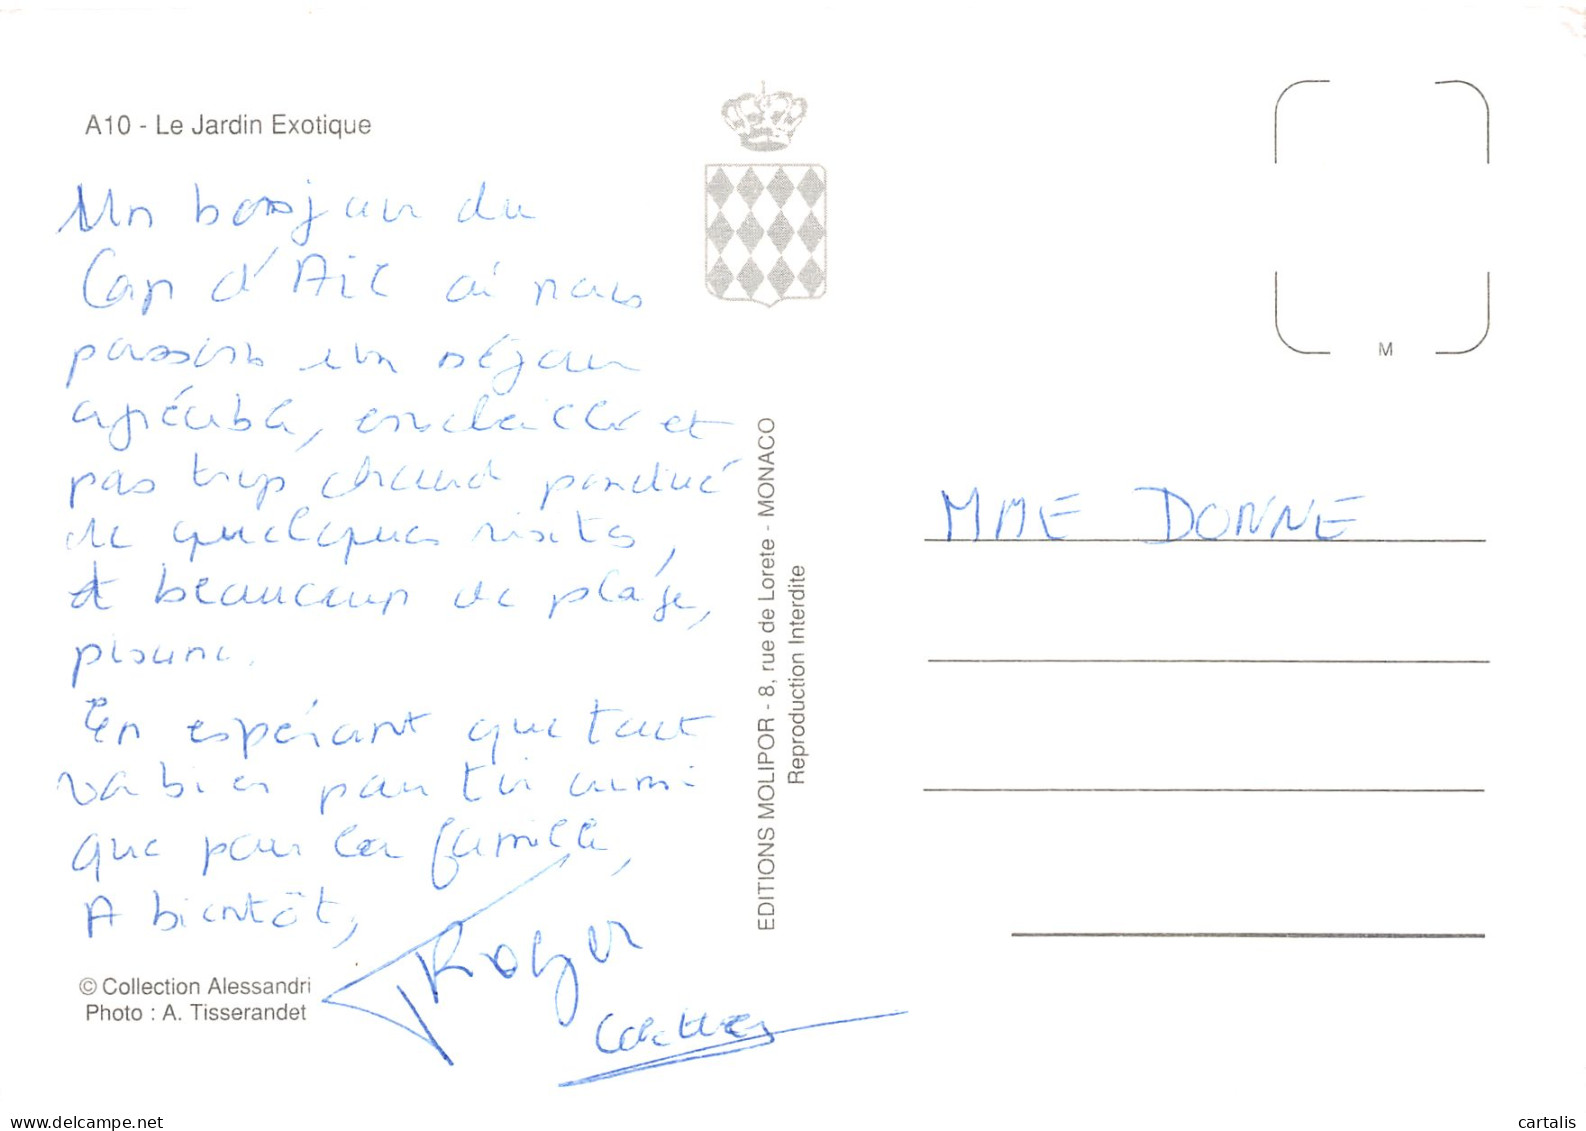 A10 - Le Jardin Exotique
Un bonjour du
Cap d'Ail où nous
passons un séjour
agréable, ensoleillé et
pas trop chaud ponctué
de quelques visites,
et beaucoup de plage,
piscine.
En espérant que tout
va bien pour toi ainsi
que pour la famille,
A bientôt,
Roger
Colette
© Collection Alessandri
Photo : A. Tisserandet
EDITIONS MOLIPOR - 8, rue de Lorete - MONACO
Reproduction Interdite
M
MME DONNE
postcards.delcampe.net
cartalis